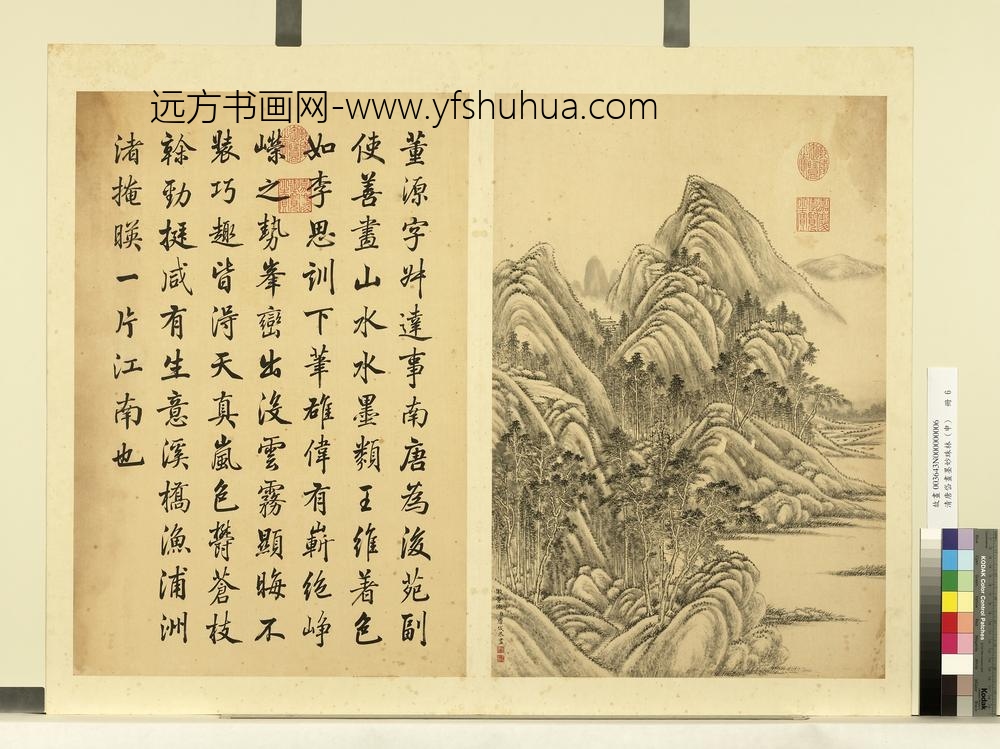 远方书画网-www.yfshuhua.com
董源字𠦑達事南唐為後苑副
使善畫山水水墨類王維着色
如李思訓下筆雄偉有嶄絕崢
嶸之勢峯巒出沒雲霧顯晦不
裝巧趣皆得天真嵐色鬱蒼枝
幹勁挺咸有生意溪橋漁浦洲
渚掩暎一片江南也
故畫003643N000000006
清唐岱畫墨妙珠林（申） 冊 6
KODAK Color Control Patches
Kodak